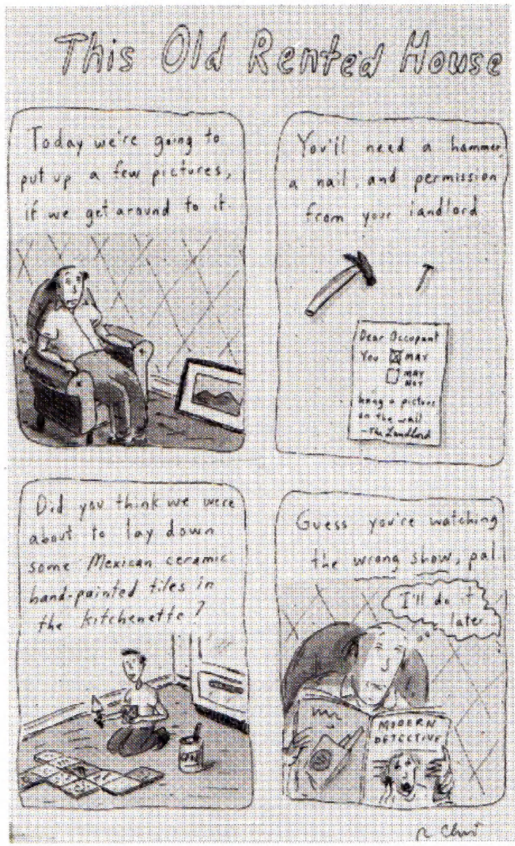 This Old Rented House
Today we're going to
put up a few pictures,
if we get around to it.
You'll need a hammer,
a nail, and permission
from your landlord
Dear Occupant
You ☒ MAY
☐ MAY
NOT
hang a picture
on the wall
-The Landlord
Did you think we were
about to lay down
some Mexican ceramic
hand-painted tiles in
the kitchenette?
Guess you're watching
the wrong show, pal.
I'll do it
later.
MODERN
DETECTIVE